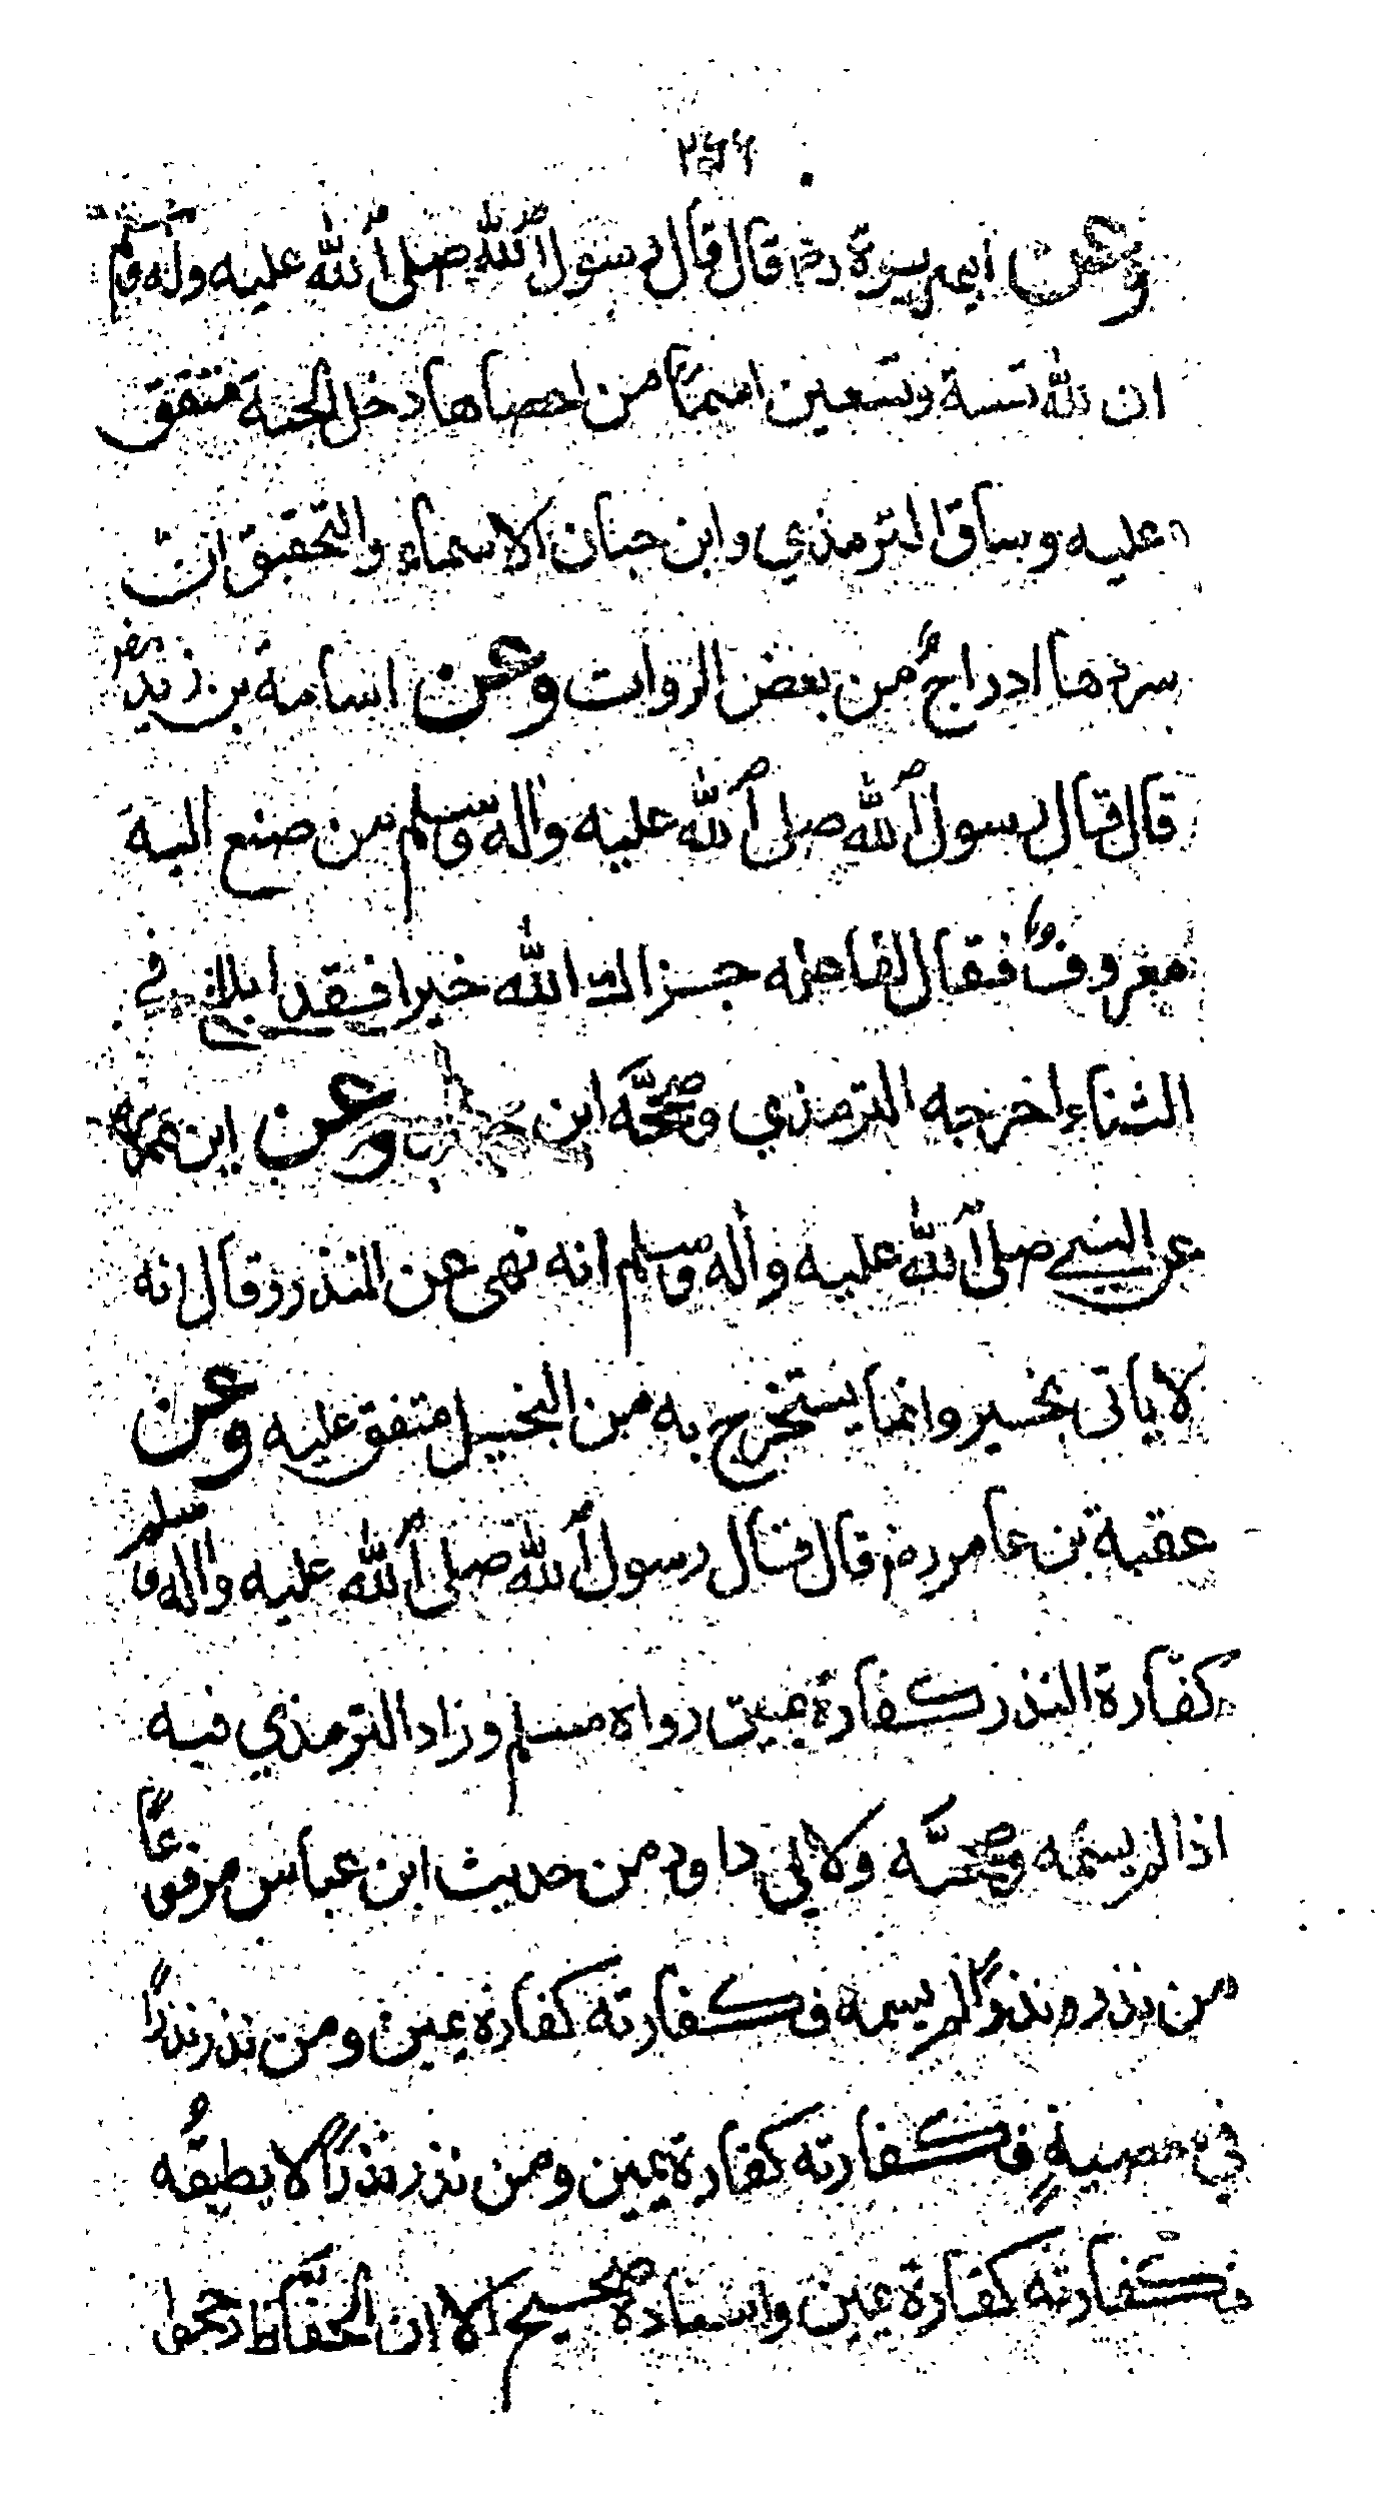 وعن ابي هريرة رض قال قال رسول الله صلى الله عليه وآله وسلم
ان لله تسعة وتسعين اسماً من احصاها دخل الجنة متفق
عليه وساق الترمذي وابن حبان الاسماء والتحقيق ان
سردها ادراجٌ من بعض الروات وعن اسامة بن زيد رض
قال قال رسول الله صلى الله عليه واله وسلم من صنع اليه
معروفٌ فقال لفاعله جزاك الله خيرا فقد ابلغ في
الثناء اخرجه الترمذي وصححَّه ابن حبان وعن ابن عمر رض
عن النبي صلى الله عليه وأله وسلم انه نهى عن النذر وقال انه
لا ياتى بخير وانما يستخرج به من البخيل متفق عليه وعن
عقبة بن عامر رض قال قال رسول الله صلى الله عليه واله وسلم
كفارة النذر كفارة يمين رواه مسلم وزاد الترمذي فيه
اذا لم يسمه وصححَّه ولابي داود من حديث ابن عباس مرفوعاً
من نذر نذراً لم يسمه فكفارته كفارة يمين ومن نذر نذراً
في معصيةٍ فكفارته كفارة يمين ومن نذر نذراً لا يطيقُه
فكفارته كفارة يمين واسناده صحيح الا ان الحفاظ رجحوا